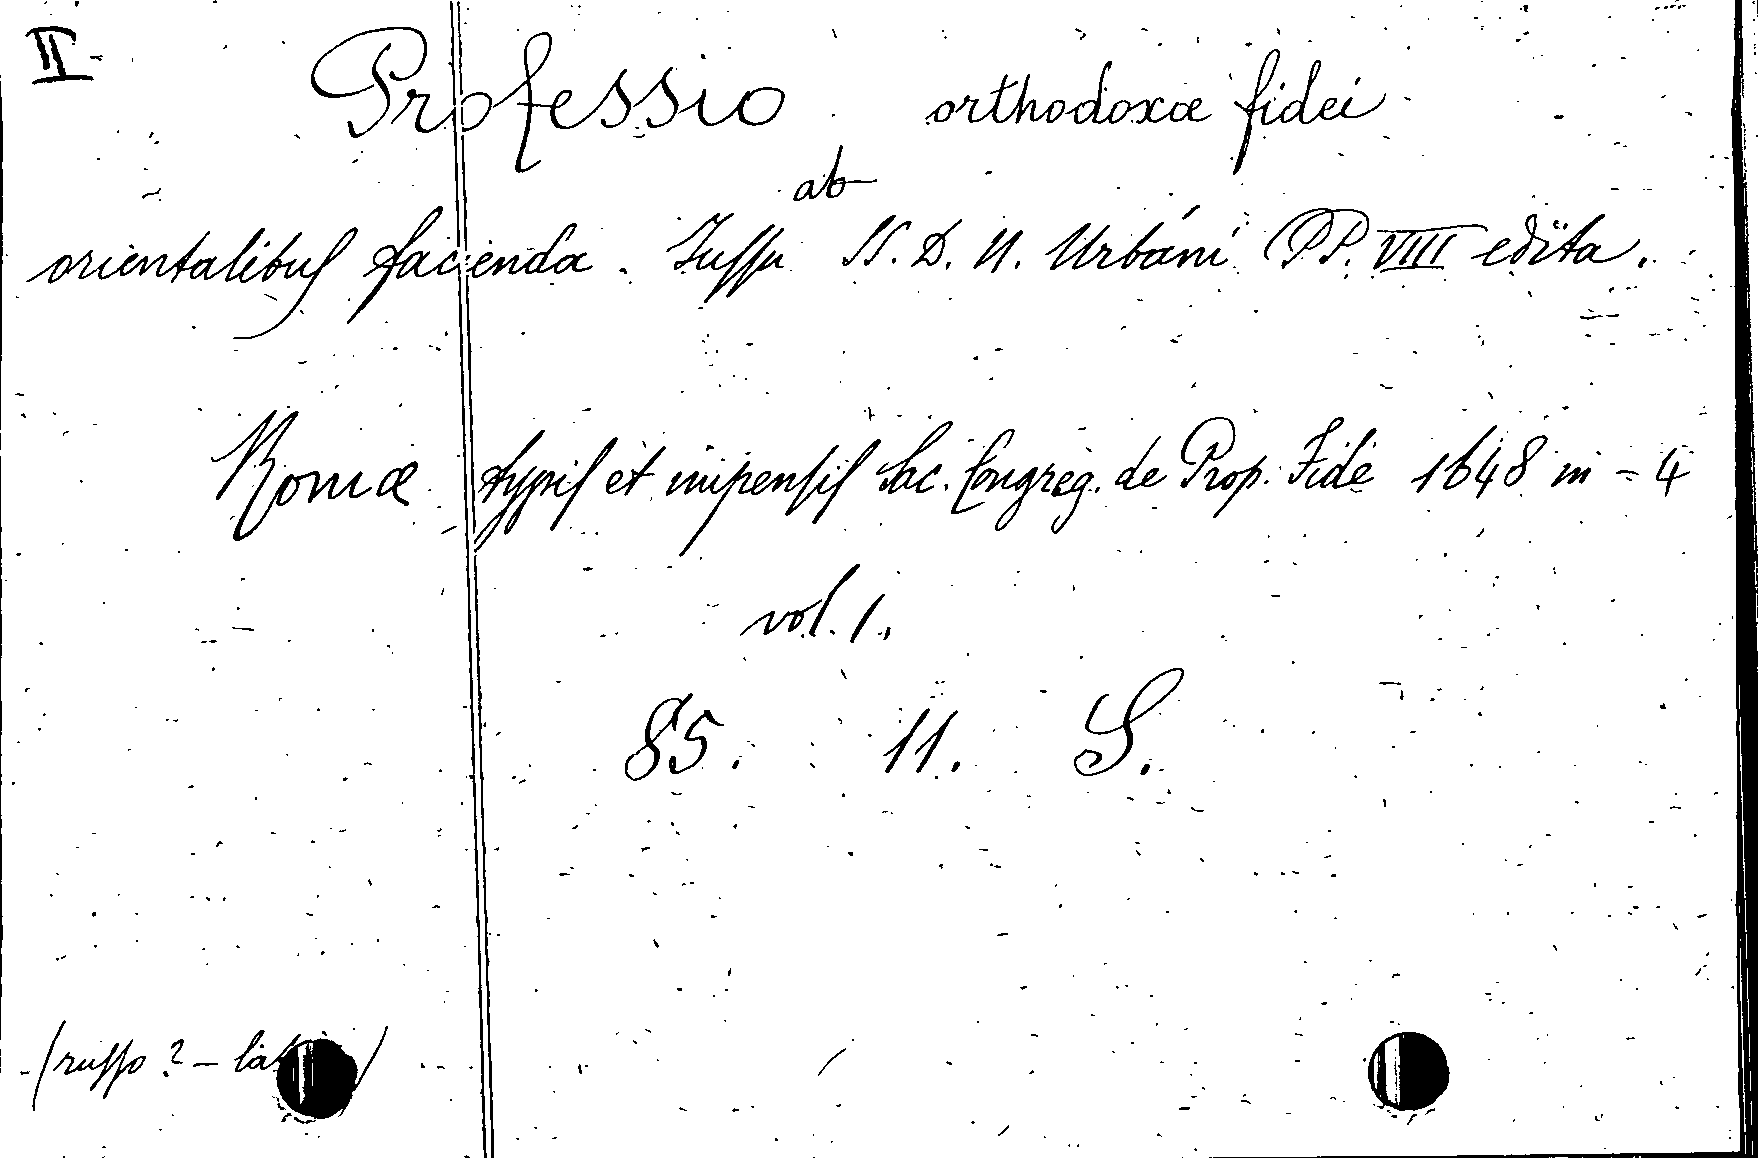 II
Professio orthodoxæ fidei
ab
orientalibus facienda. Jussu S. D. N. Urbani PP. VIII edita.
Romæ typis et impensis Sac. Congreg. de Prop. Fide 1648 in-4
vol. 1.
85. 11. S.
(russo? -